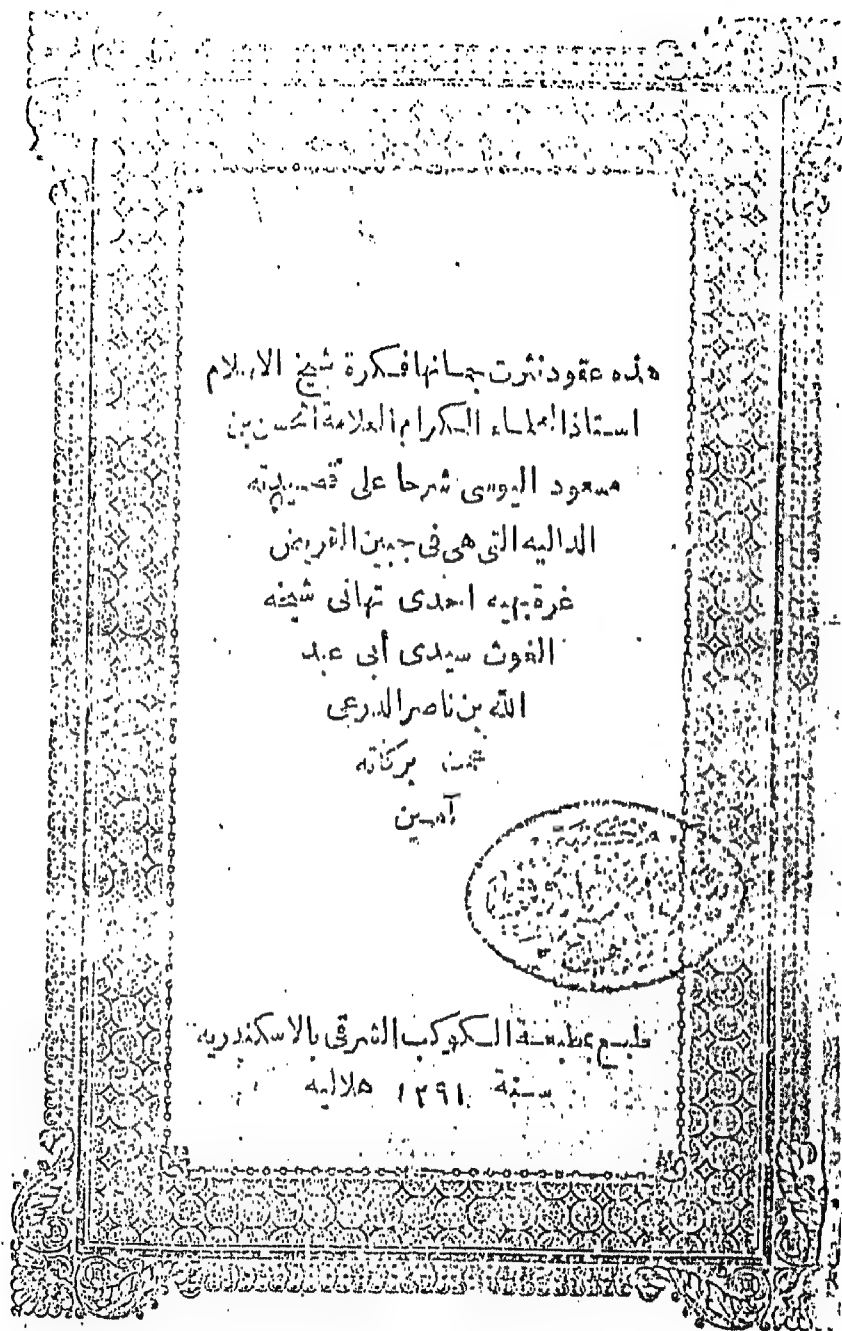 هذه عقود نثرت جمانها فكرة شيخ الاسلام
استاذ العلماء الكرام العلامة الحسن بن
مسعود اليوسى شرحا على قصيدته
الداليه التى هى فى جبين القريض
غرة بهيه احدى تهانى شيخه
الغوث سيدى أبى عبد
الله بن ناصر الدرعى
عمت بركاته
آمين
طبع بمطبعة الكوكب الشرقى بالاسكندريه
سنة ١٢٩١ هلاليه